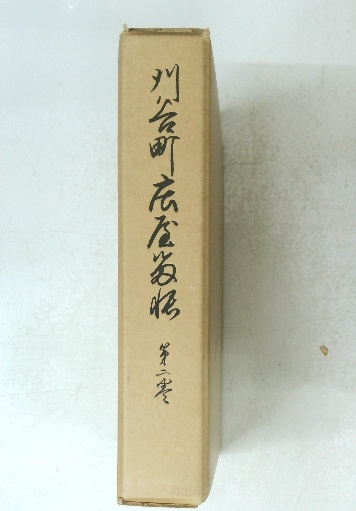 刈谷町庄屋留帳
第二巻